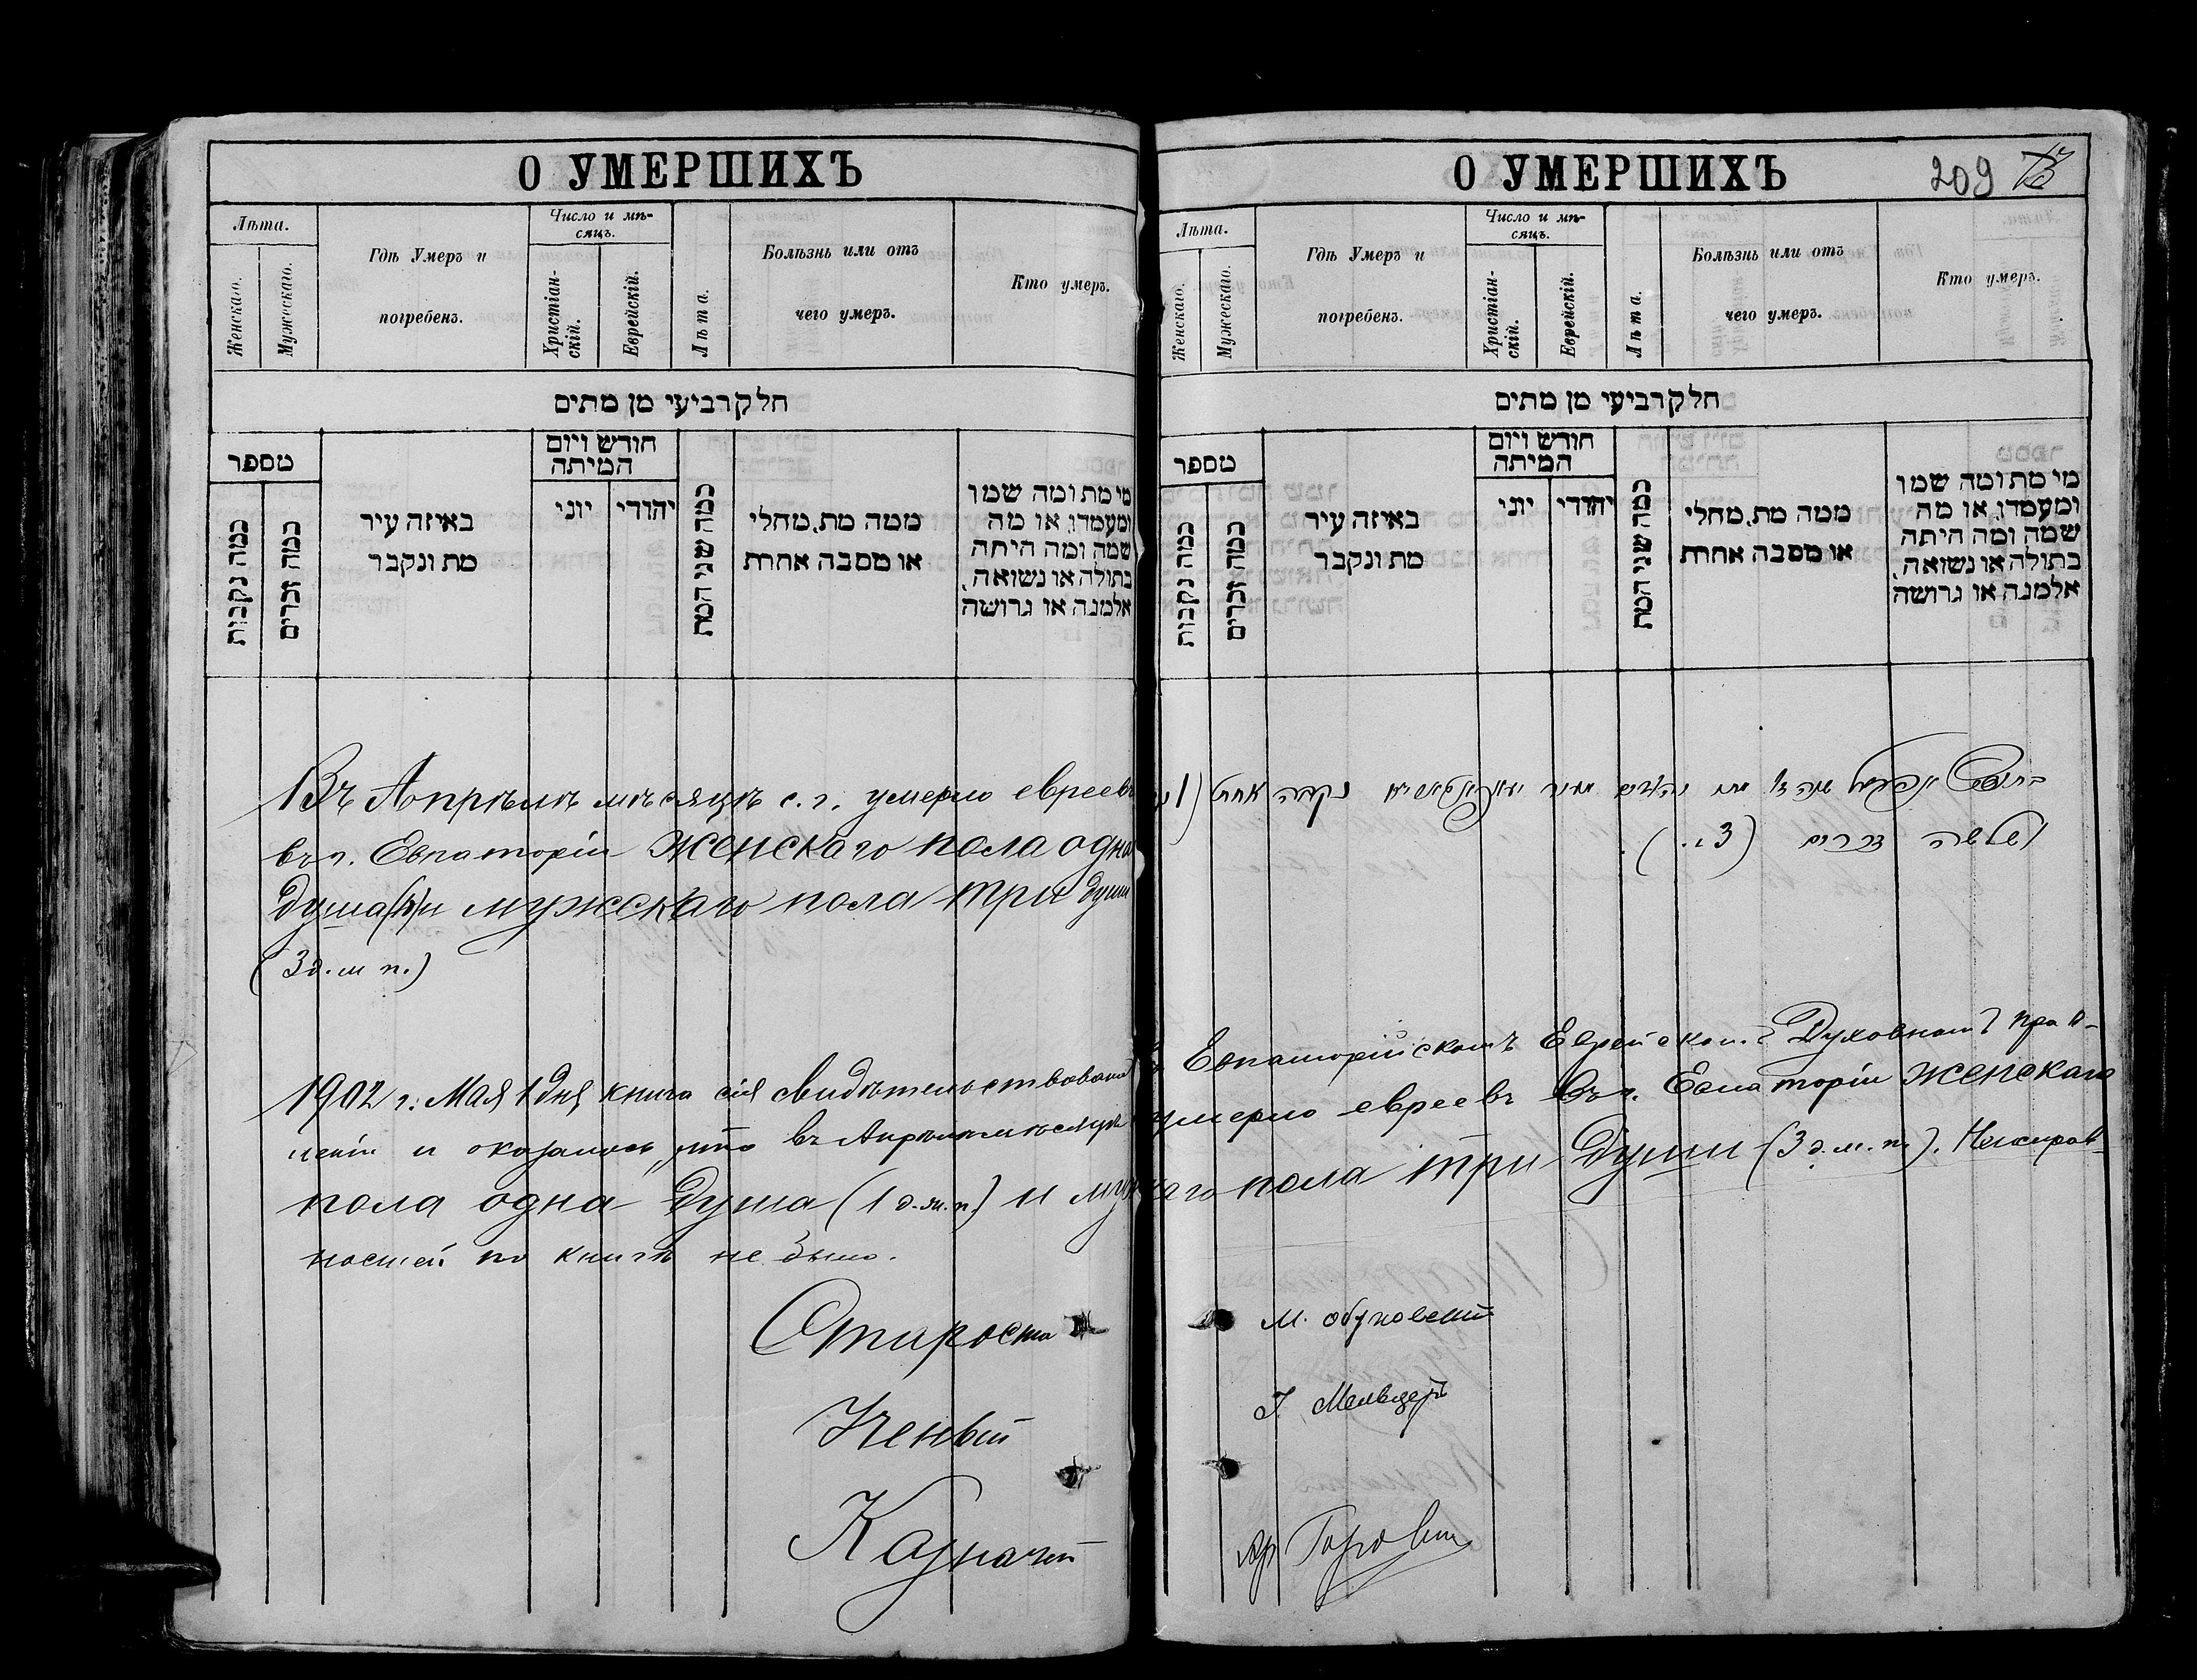 О УМЕРШИХЪ
Лѣта.
Женскаго.
Мужескаго.
Гдѣ Умеръ и
погребенъ.
Число и мѣ-
сяцъ.
Христіан-
скій.
Еврейскій.
Лѣта.
Болѣзнь или отъ
чего умеръ.
Кто умеръ.
חלק רביעי מן מתים
מספר
כמה נקבות
כמה זכרים
באיזה עיר
מת ונקבר
חודש ויום
המיתה
יוני
יהודי
כמה שני המת
ממה מת, מחלי
או מסבה אחרת
מי מת ומה שמו
ומעמדו, או מה
שמה ומה היתה
בתולה או נשואה,
אלמנה או גרושה
Въ Апрѣлѣ мѣсяцѣ с. г. умерло евреевъ
въ г. Евпаторіи женскаго пола одна
душа (1) и мужскаго пола три души
(3 д. м. п.)
О УМЕРШИХЪ
209
Лѣта.
Женскаго.
Мужескаго.
Гдѣ Умеръ и
погребенъ.
Число и мѣ-
сяцъ.
Христіан-
скій.
Еврейскій.
Лѣта.
Болѣзнь или отъ
чего умеръ.
Кто умеръ.
חלק רביעי מן מתים
מספר
כמה נקבות
כמה זכרים
באיזה עיר
מת ונקבר
חודש ויום
המיתה
יוני
יהודי
כמה שני המת
ממה מת, מחלי
או מסבה אחרת
מי מת ומה שמו
ומעמדו, או מה
שמה ומה היתה
בתולה או נשואה,
אלמנה או גרושה
נקבה אחת (1
ושלשה זכרים (3 ז.)
1902 г. Мая 1 дня книга сія свидѣтельствована въ Евпаторійскомъ Еврейском Духовномъ прав-
леніи и оказалось, что въ Апрѣлѣ мѣсяцѣ умерло евреевъ въ г. Евпаторіи женскаго
пола одна душа (1 д. ж. п.) и мужскаго пола три души (3 д. м. п.). Неисправ-
ностей по книгѣ не было.
Староста М. Обуховскій
Ученый
Казначей